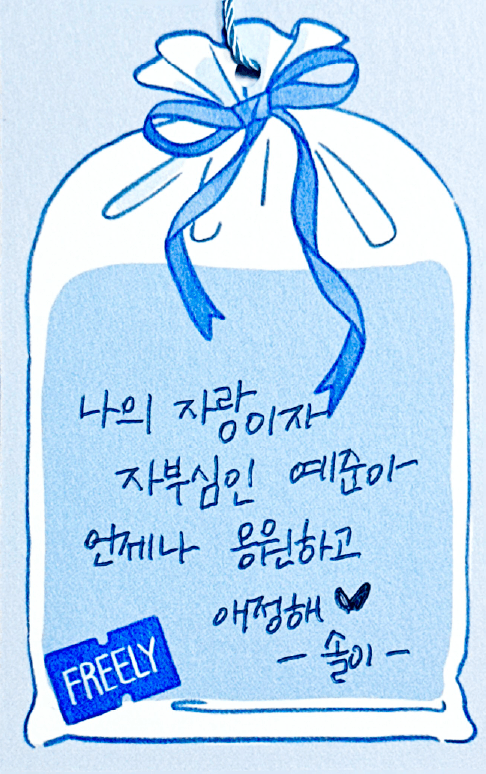 나의 자랑이자
자부심인 예준아
언제나 응원하고
애정해 ♥
- 솔이 -
FREELY